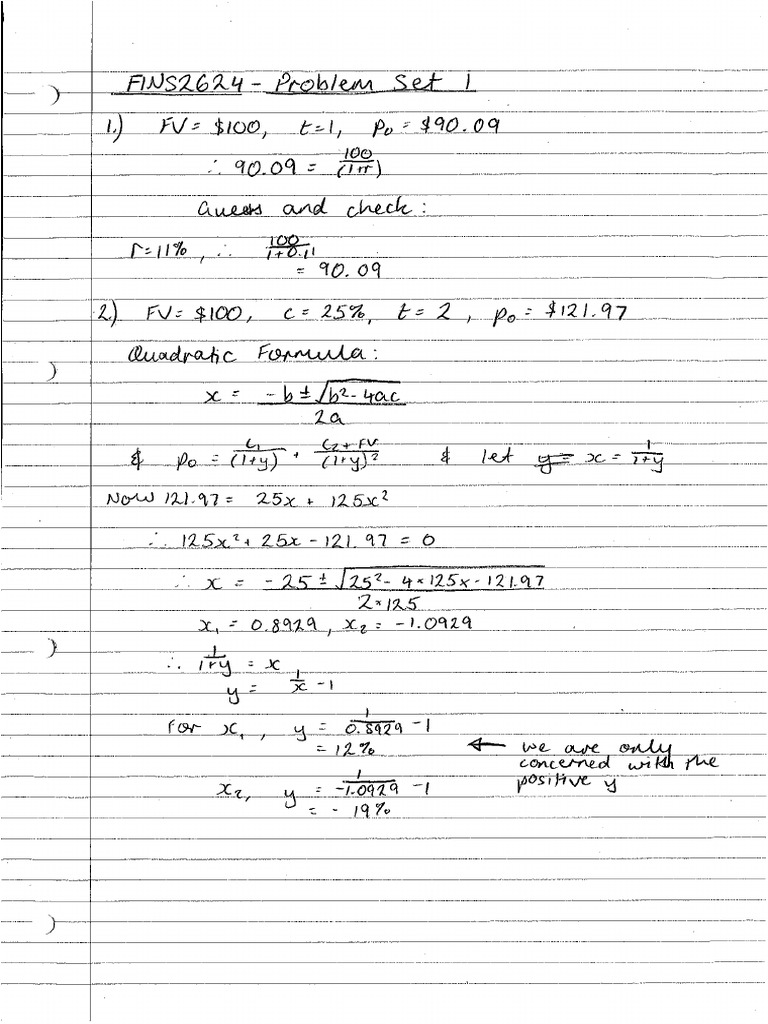 FINS2624 - Problem Set 1
1.) FV = $100, t=1, P₀ = $90.09
∴ 90.09 = 100/(1+r)
Guess and check:
r=11%, ∴ 100/1+0.11
= 90.09
2.) FV = $100, c = 25%, t = 2, P₀ = $121.97
Quadratic Formula:
x = -b ± √b²-4ac / 2a
& P₀ = C₁/(1+y) + C₂+FV/(1+y)² & let y = x = 1/1+y
Now 121.97 = 25x + 125x²
∴ 125x² + 25x - 121.97 = 0
∴ x = -25 ± √25² - 4×125x-121.97 / 2×125
x₁ = 0.8929, x₂ = -1.0929
∴ 1/1+y = x
y = 1/x - 1
For x₁, y = 1/0.8929 - 1
= 12% ← we are only
concerned with the
positive y
x₂, y = 1/-1.0929 - 1
= - 19%